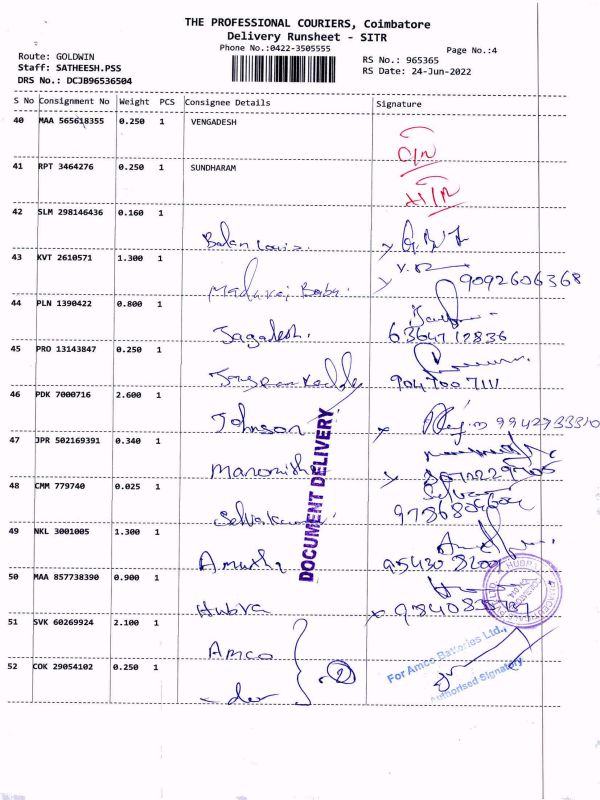 THE PROFESSIONAL COURIERS, Coimbatore
Delivery Runsheet - SITR
Phone No.:0422-3505555
Page No.:4
Route: GOLDWIN
Staff: SATHEESH.PSS
DRS No.: DCJB96536504
RS No.: 965365
RS Date: 24-Jun-2022
S No Consignment No Weight PCS Consignee Details Signature
40 MAA 565618355 0.250 1 VENGADESH
41 RPT 3464276 0.250 1 SUNDHARAM
42 SLM 298146436 0.160 1
Balan Louis.
43 KVT 2610571 1.300 1
Baba. 9092606368
44 PLN 1390422 0.800 1
Jagadesh.
45 PRO 13143847 0.250 1
9047007111
46 PDK 7000716 2.600 1
Johnson
47 JPR 502169391 0.340 1
48 CMM 779740 0.025 1
Selvakumar
49 NKL 3001005 1.300 1
Amutha
50 MAA 857738390 0.900 1
51 SVK 60269924 2.100 1
Amco
52 COK 29054102 0.250 1
2
DOCUMENT DELIVERY
For Amco Batteries Ltd.,
Authorised Signatory